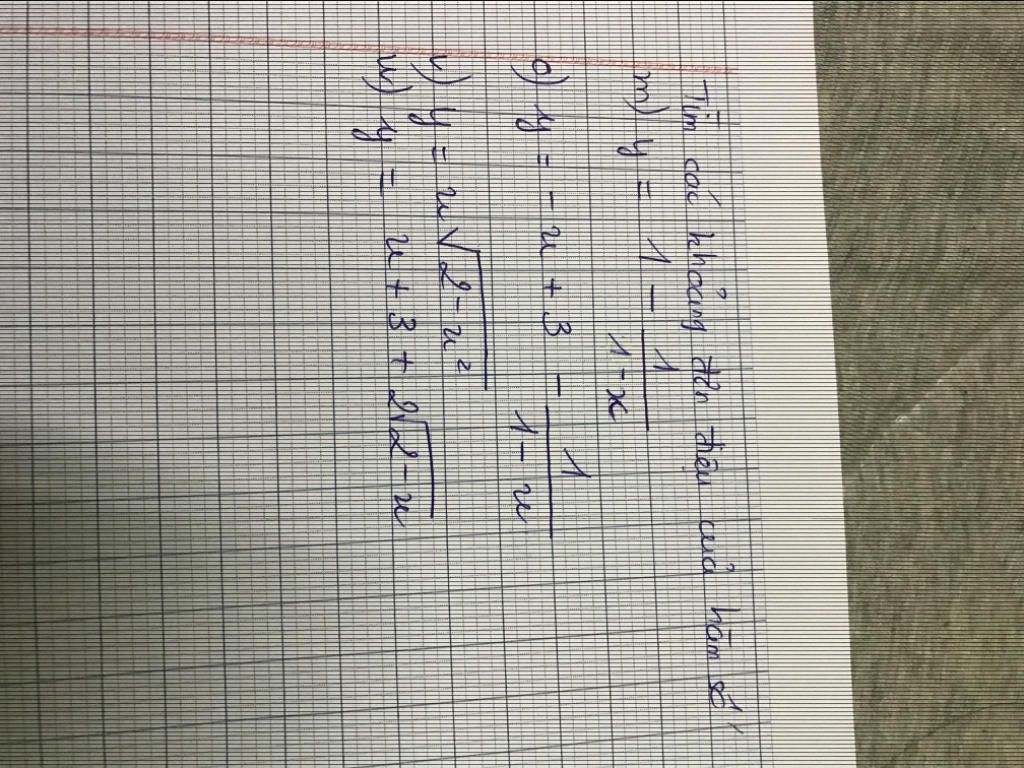 Tìm các khoảng đơn điệu của hàm số
m) y = 1 - 1/(1-x)
o) y = -x + 3 - 1/(1-x)
v) y = x√(2-x²)
w) y = x + 3 + 2√(2-x)